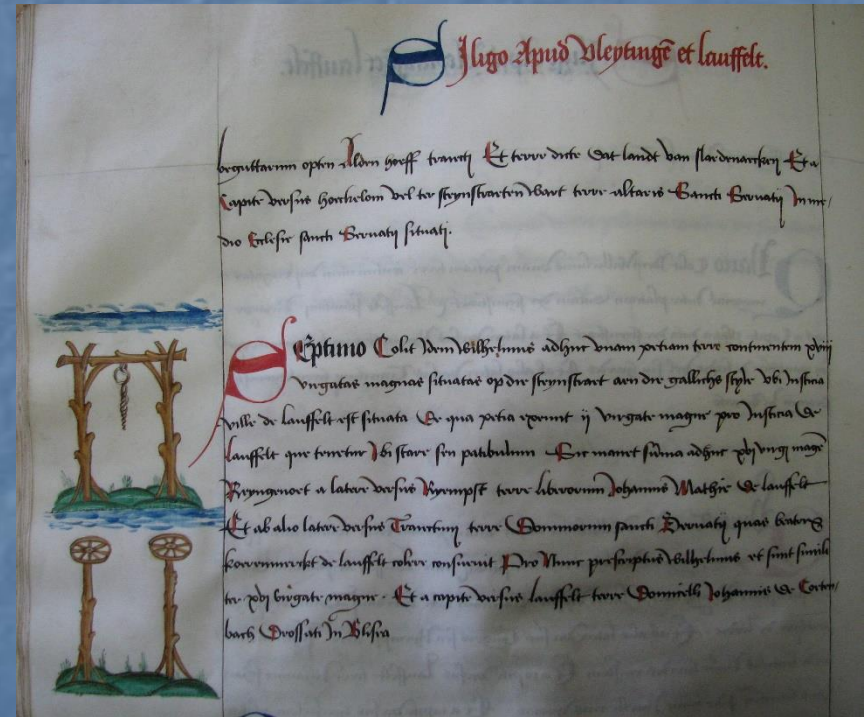 Siligo Apud Vleytingē et lauffelt.
beguttarum opten Alden hoeff traiecti Et terre dicte dat landt van slaedenaecken Et a
Capite versus hoechelom vel ter steynstraeten wart terre altaris Sancti Servatij In me/
dio Eclesie sancti Servatij situati.
Septimo Colit Idem Wilhelmus adhuc vnam petiam terre continentem xviij
virgatas magnas situatas op die steynstraet aen die gallichs style vbi Insticia
ville de lauffelt est situata De qua petia exeunt ij virgate magne pro Insticia de
lauffelt que tenetur Ibi stare seu patibulum Sic manet sūma adhuc xvj virg magē
Reyngenoet a latere versus Ryempst terre liberorum Johannis Mathie de lauffelt
Et ab alio latere versus Traiectum terre Dominorum sancti Servatij quas beatrix
koerenmerckt de lauffelt colere consuevit Pro Nunc prescriptus wilhelmus et sunt simili
ter xvj virgate magne. Et a capite versus lauffelt terre Domicelli Johannis de Corten/
bach Drossati In Blisia